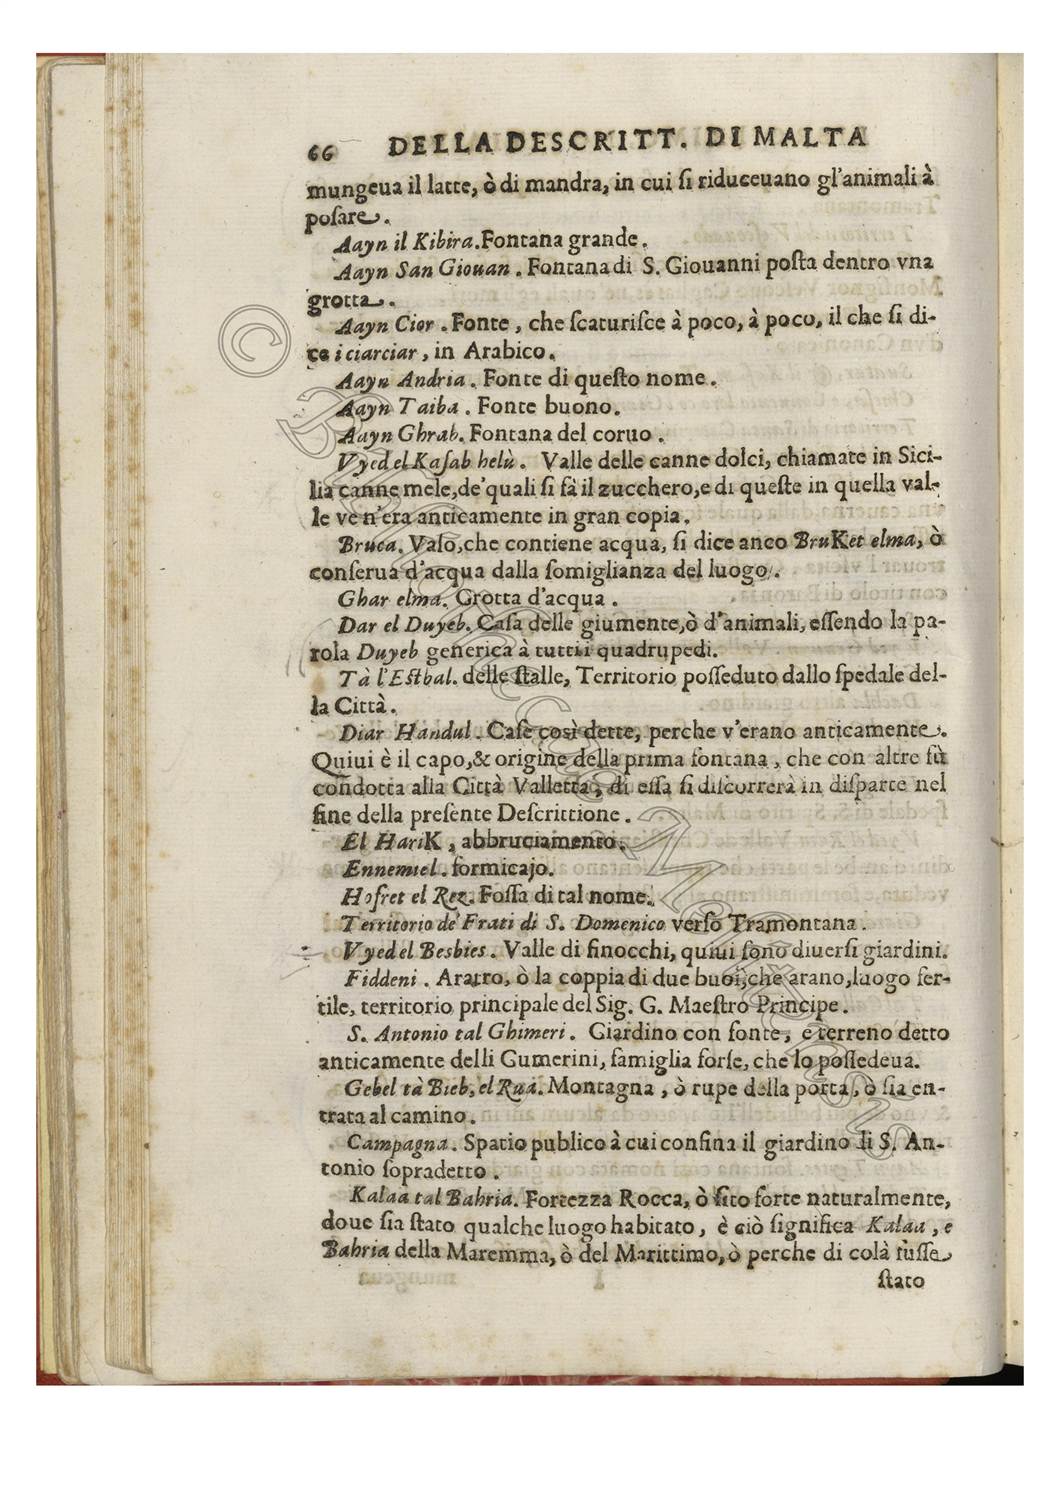 66 DELLA DESCRITT. DI MALTA
mungeua il latte, ò di mandra, in cui ſi riduceuano gl'animali à
poſare.
Aayn il Kibira. Fontana grande.
Aayn San Giouan. Fontana di S. Giouanni poſta dentro vna
grotta.
Aayn Cior. Fonte, che ſcaturiſce à poco, à poco, il che ſi di-
ce i ciarciar, in Arabico.
Aayn Andria. Fonte di queſto nome.
Aayn Taiba. Fonte buono.
Aayn Ghrab. Fontana del coruo.
Vyed el Kaſab helù. Valle delle canne dolci, chiamate in Sici-
lia canne mele, de' quali ſi fà il zucchero, e di queſte in quella val-
le ve n'era anticamente in gran copia.
Bruca. Vaſo, che contiene acqua, ſi dice anco BruKet elma, ò
conſerua d'acqua dalla ſomiglianza del luogo.
Ghar elma. Grotta d'acqua.
Dar el Duyeb. Caſa delle giumente, ò d'animali, eſſendo la pa-
rola Duyeb generica à tutti i quadrupedi.
Tà l'Eſtbal. delle ſtalle, Territorio poſſeduto dallo ſpedale del-
la Città.
Diar Handul. Caſe così dette, perche v'erano anticamente.
Quiui è il capo, & origine della prima fontana, che con altre fù
condotta alla Città Valletta, di eſſa ſi diſcorrerà in diſparte nel
fine della preſente Deſcrittione.
El HariK, abbruciamento.
Ennemel. formicajo.
Hofret el Rez. Foſſa di tal nome.
Territorio de' Frati di S. Domenico verſo Tramontana.
Vyed el Besbies. Valle di finocchi, quiui ſono diuerſi giardini.
Fiddeni. Aratro, ò la coppia di due buoi, che arano, luogo fer-
tile, territorio principale del Sig. G. Maeſtro Principe.
S. Antonio tal Ghimeri. Giardino con fonte, e terreno detto
anticamente delli Gumerini, famiglia forſe, che lo poſſedeua.
Gebel tà Bieb, el Raà. Montagna, ò rupe della porta, ò ſia en-
trata al camino.
Campagna. Spatio publico à cui confina il giardino di S. An-
tonio ſopradetto.
Kalaa tal Bahria. Fortezza Rocca, ò ſito forte naturalmente,
doue ſia ſtato qualche luogo habitato, è ciò ſignifica Kalaa, e
Bahria della Maremma, ò del Marittimo, ò perche di colà fuſſe
ſtato